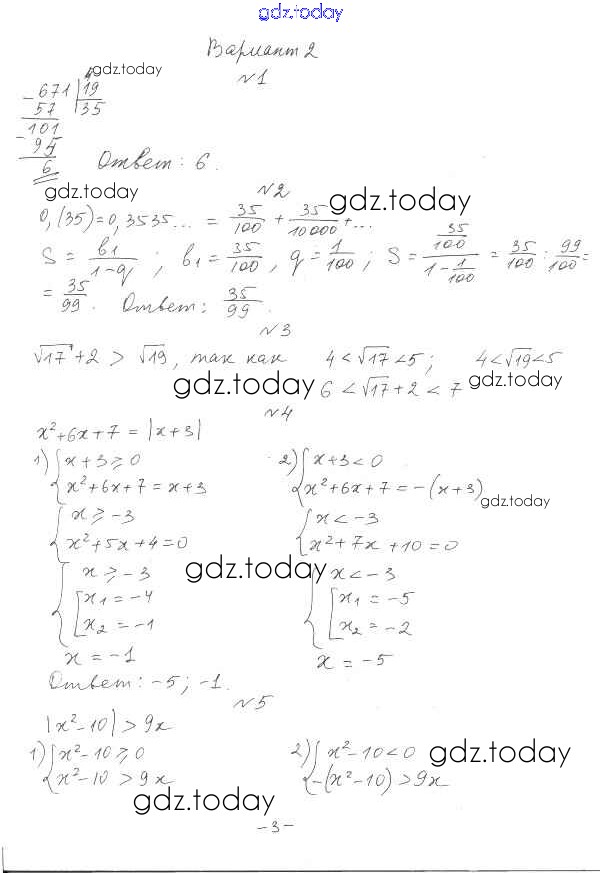 gdz.today
Вариант 2
gdz.today
№1
- 671 | 19
57 | 35
- 101
95
6 Ответ: 6.
gdz.today
№2
gdz.today
0,(35) = 0,3535... = 35/100 + 35/10000 + ...
S = b₁/(1-q) ; b₁ = 35/100 , q = 1/100 ; S = (35/100)/(1 - 1/100) = 35/100 : 99/100 =
= 35/99 . Ответ: 35/99 .
№3
√17 + 2 > √19, так как 4 < √17 < 5; 4 < √19 < 5
gdz.today 6 < √17 + 2 < 7 gdz.today
№4
x² + 6x + 7 = |x + 3|
1) { x + 3 ⩾ 0 2) { x + 3 < 0
x² + 6x + 7 = x + 3 x² + 6x + 7 = -(x + 3)
gdz.today
{ x ⩾ -3 { x < -3
x² + 5x + 4 = 0 x² + 7x + 10 = 0
{ x ⩾ -3 gdz.today { x < -3
[ x₁ = -4 [ x₁ = -5
x₂ = -1 x₂ = -2
x = -1 x = -5
Ответ: -5; -1.
№5
|x² - 10| > 9x
1) { x² - 10 ⩾ 0 2) { x² - 10 < 0 gdz.today
x² - 10 > 9x -(x² - 10) > 9x
gdz.today
- 3 -